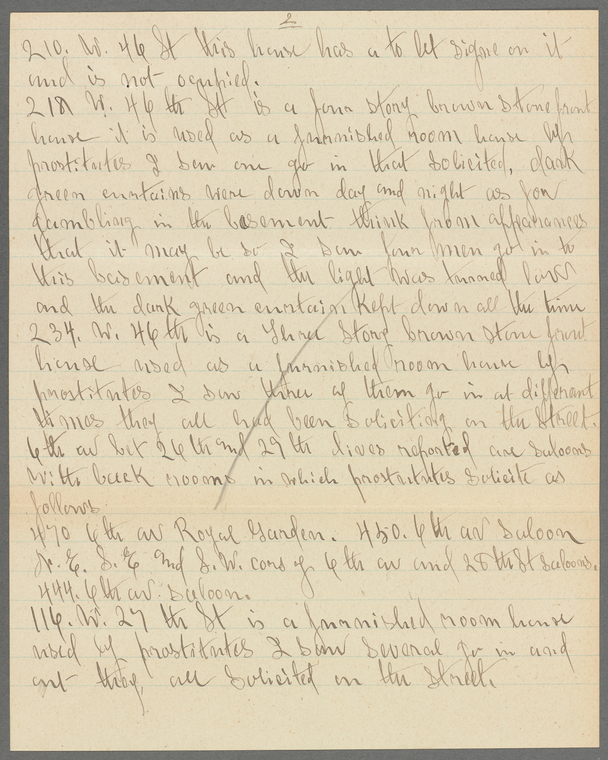 2
210. W. 46 St this house has a to let signe on it
and is not ocupied.
218 W. 46 th St is a four story brown stone front
house it is used as a furnished room house by
prostitutes I saw one go in that Solicited, dark
green curtains were down day and night as for
gambling in the basement think from appearances
that it may be so I saw four men go in to
this basement and the light was turned low
and the dark green curtain kept down all the time
234. W. 46th is a Three Story brown stone front
house used as a furnished room house by
prostitutes I saw three of them go in at different
times they all had been Soliciting on the Street.
6th av bet 26th and 29th dives reported are saloons
with back rooms in which prostitutes Solicite as
follows
470 6th av Royal Garden. 450. 6th av Saloon
N. E. S. E and S. W. cors of 6th av and 28th St Saloons.
444. 6th av. Saloon.
116. W. 27 th St is a furnished room house
used by prostitutes I saw Several go in and
out they, all Solicited on the Street.